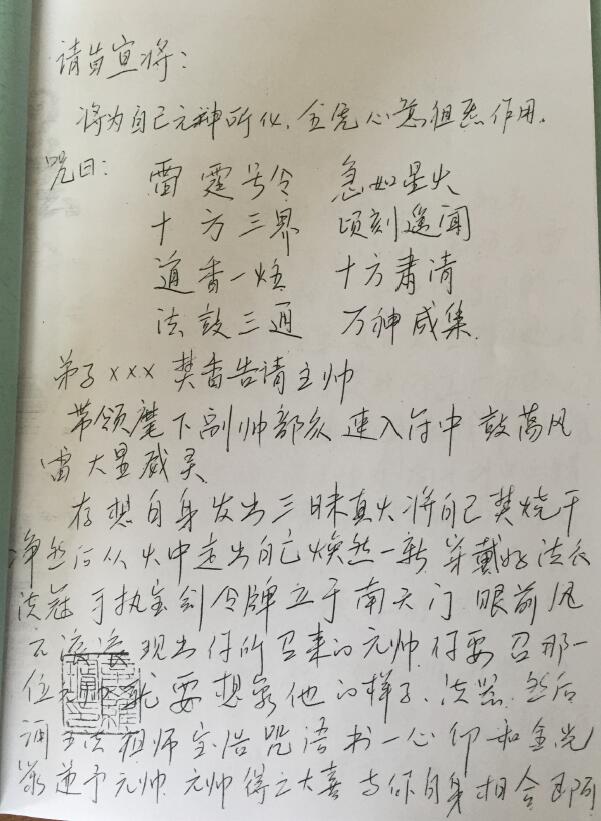 请 宣将：
将为自己元神所化、全凭心意 作用。
咒曰： 雷霆号令 急如星火
十方三界 顷刻遥闻
道香一炷 十方肃清
法鼓三通 万神咸集
弟子xxx 焚香告请主帅
带领麾下副帅部众 速入符中 鼓荡风
雷大显威灵
存想自身发出三昧真火将自己焚烧干
净然后从火中走出自己焕然一新 穿戴好法衣
法冠 手执宝剑令牌立于南天门 眼前风
云滚滚 现出你所召来的元帅 你要召那一
位 就要想象他的样子、法器 然后
诵 法祖师宝诰咒语书一心印和金光
篆递予元帅 元帅得之大喜 与你自身相合 即可